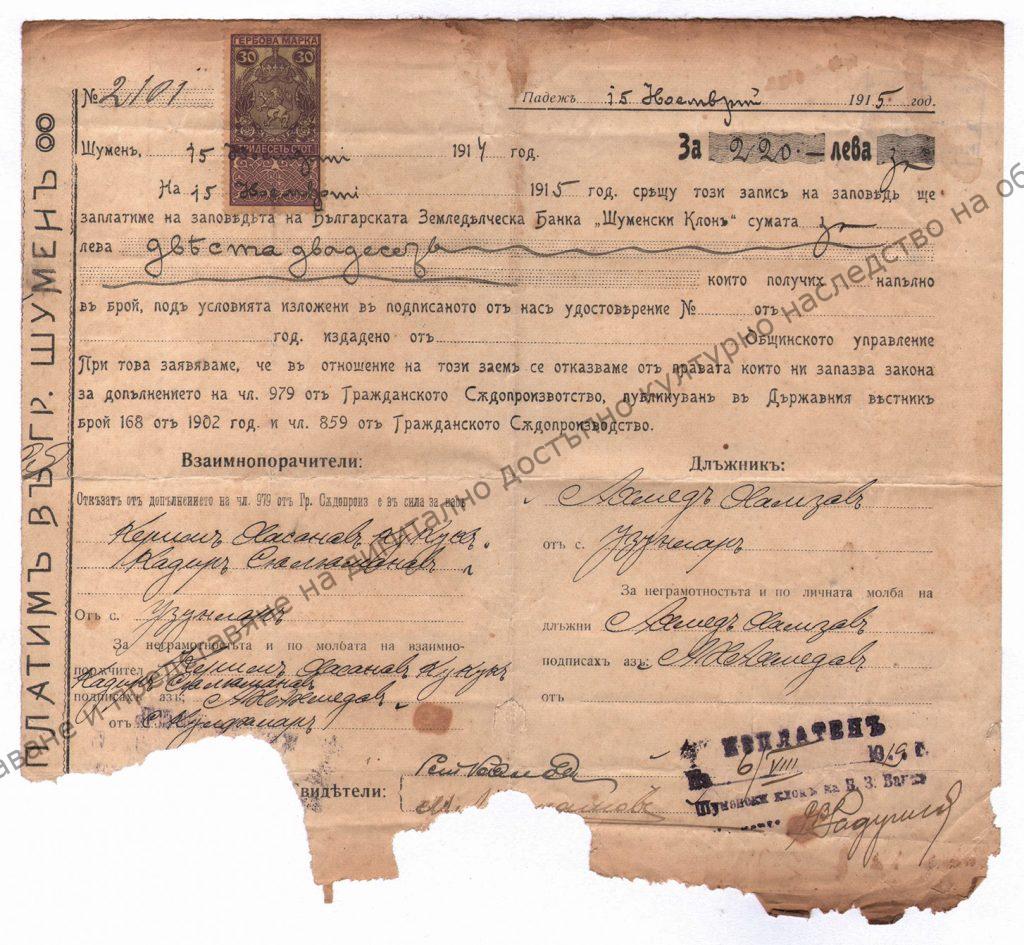 ГЕРБОВА МАРКА
30 30
№ 2101
Падежъ 15 Ноемврий 1915 год.
Шуменъ, 15 1914 год.
За 220.— лева за
На 15 Ноемврий 1915 год. срѣщу този запись на заповѣдь ще
заплатиме на заповѣдьта на Българската Земледѣлческа Банка „Шуменски Клонъ“ сумата за
лева двѣста двадесетъ
които получих напълно
въ брой, подъ условията изложени въ подписаното отъ насъ удостовѣрение № отъ
год. издадено отъ Общинското управление
При това заявяваме, че въ отношение на този заемъ се отказваме отъ правата които ни запазва закона
за допълнението на чл. 979 отъ Гражданското Сѫдопроизвотство, публикуванъ въ Държавния вѣстникъ
брой 168 отъ 1902 год. и чл. 859 отъ Гражданското Сѫдопроизводство.
ПЛАТИМЪ ВЪ ГР. ШУМЕНЪ
Взаимнопорѫчители:
Отказътъ отъ допълнението на чл. 979 отъ Гр. Сѫдопроиз е въ сила за насъ
Керимъ Хасановъ
Кадиръ Сюлюмановъ
Отъ с. Узунларъ
За неграмотностьта и по молбата на взаимно-
порѫчител Керимъ Хасановъ
Кадиръ Сюлюмановъ
подписахъ азъ,
отъ с.
Длъжникъ:
Ахмедъ Хамзовъ
отъ с. Узунларъ
За неграмотностьта и по личната молба на
длъжни Ахмедъ Хамзовъ
подписахъ азъ:
отъ
Свидѣтели:
ИЗПЛАТЕНЪ
На 6/VIII 1919 г.
Шуменски клонъ на Б. З. Банка
даване и представяне на дигитално достъпно културно наследство на об